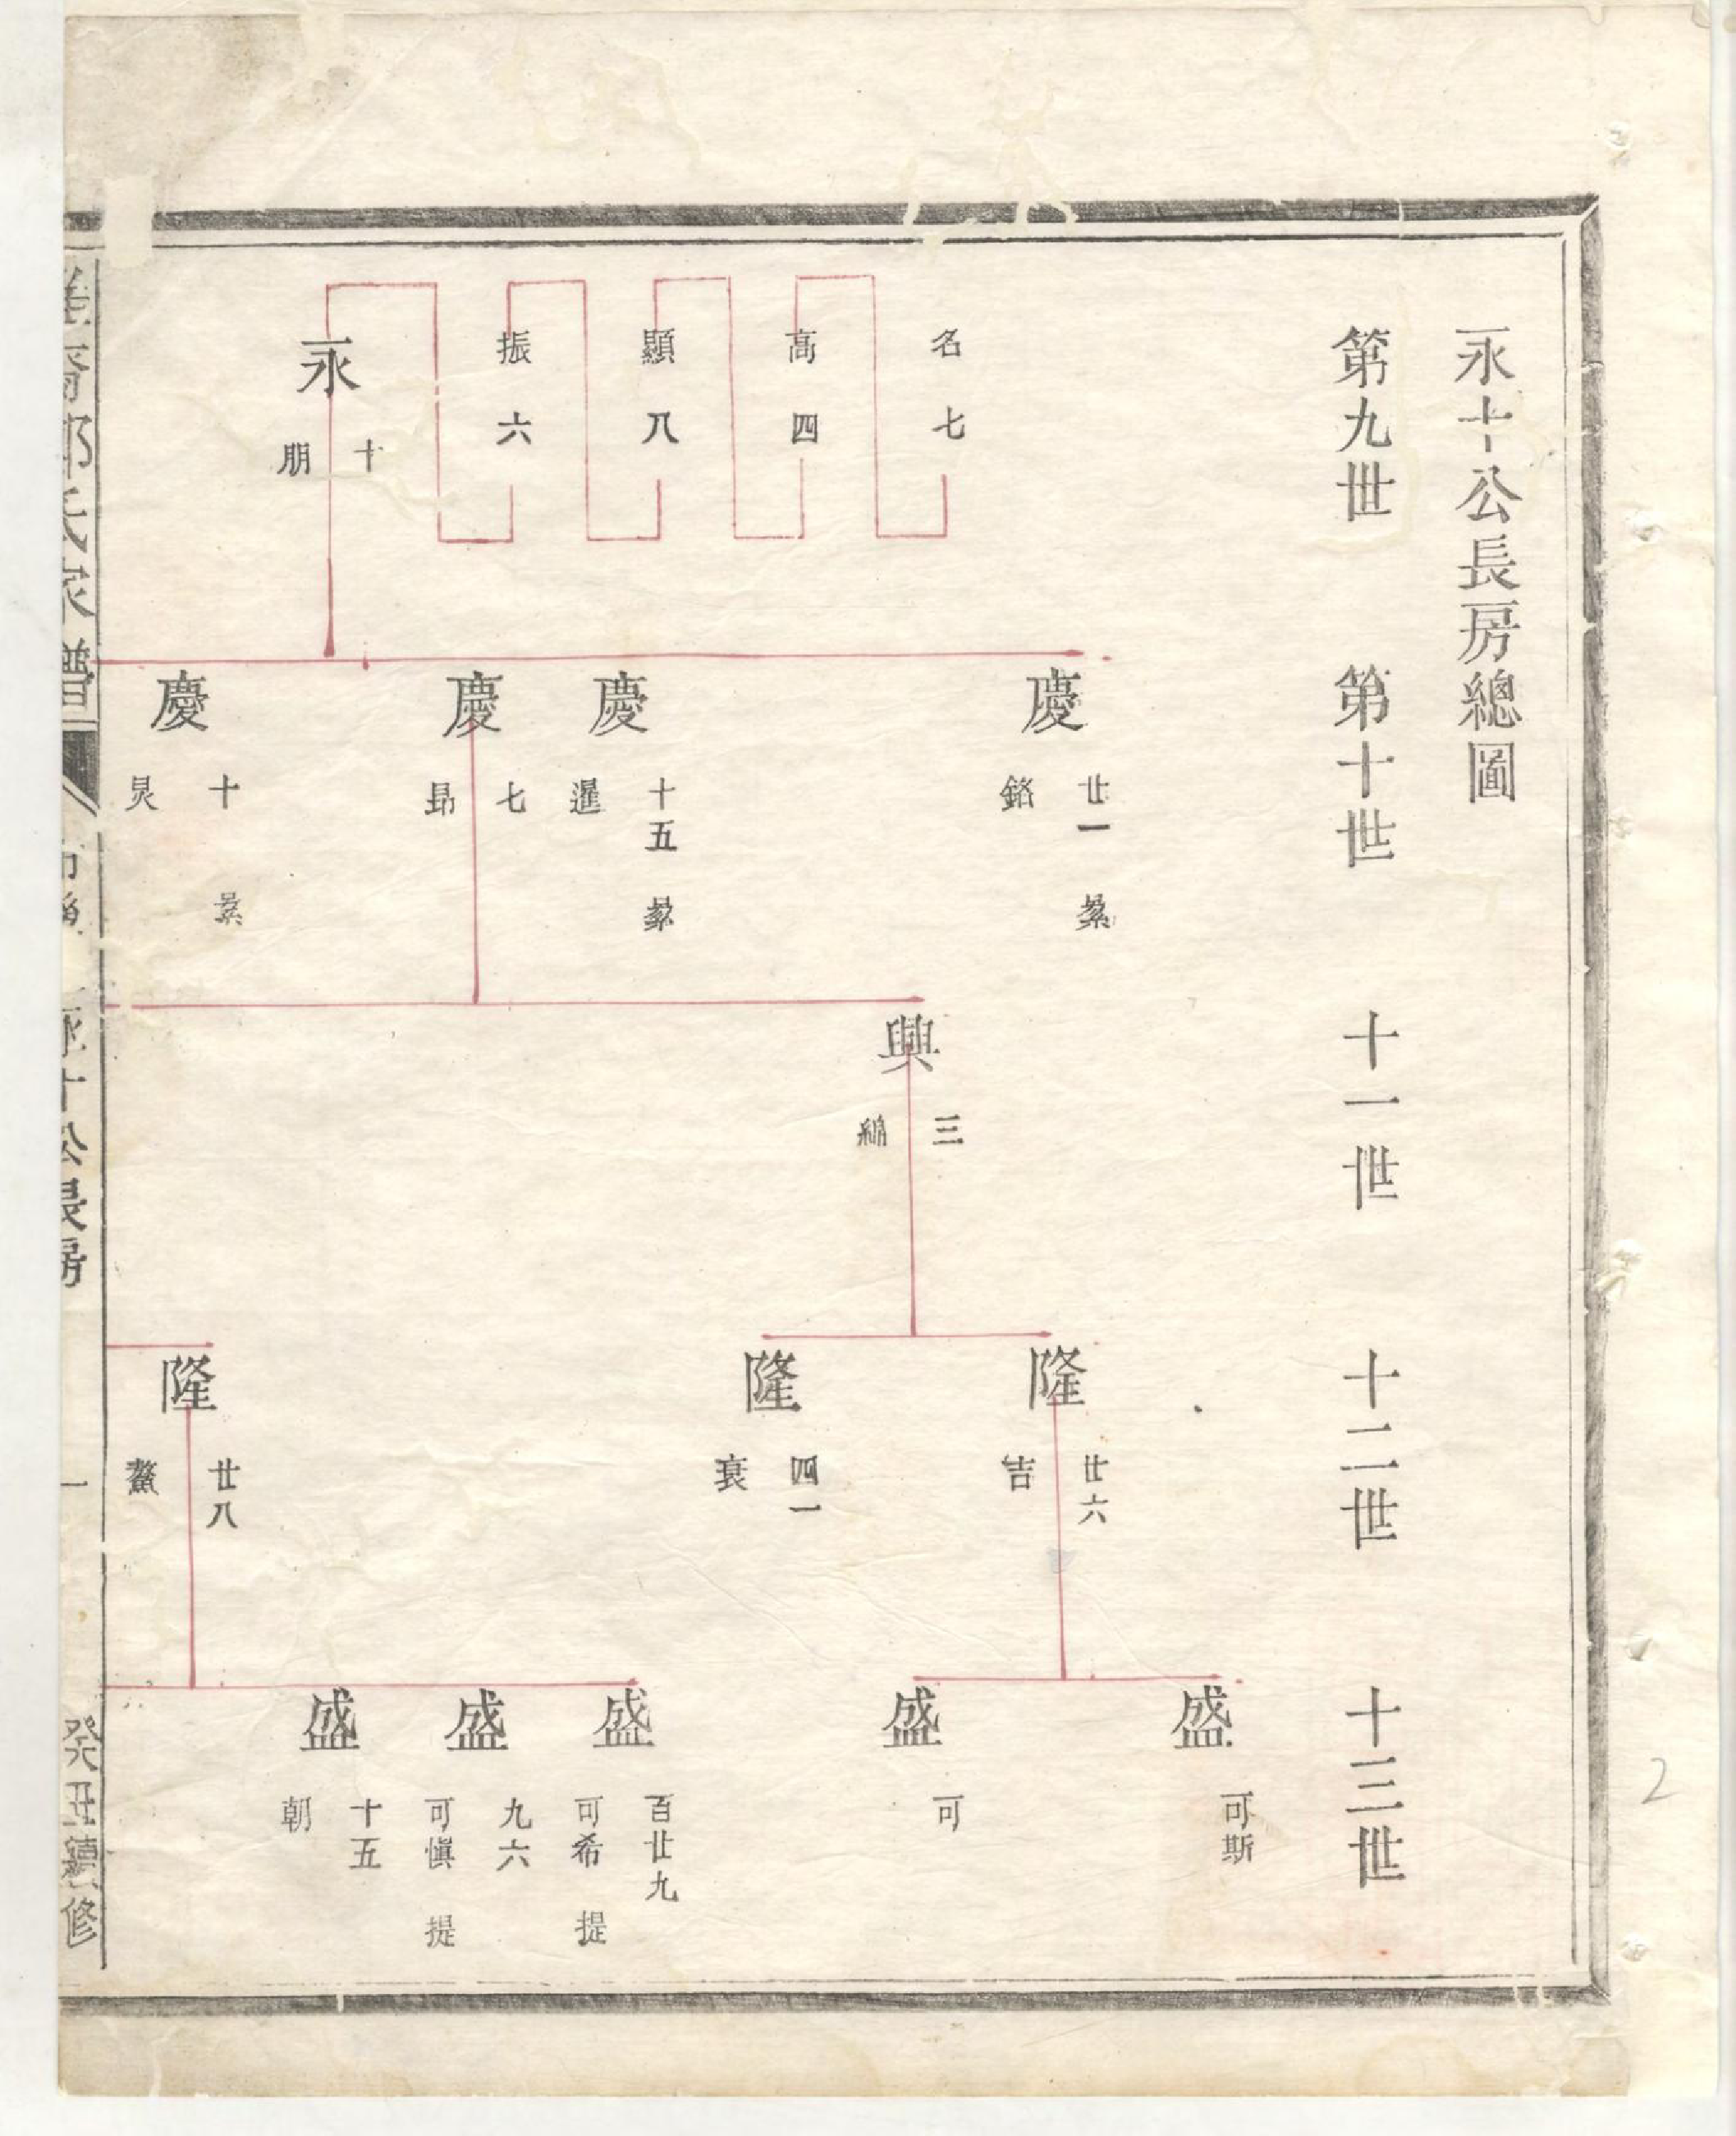 永十公長房總圖
第九世
第十世
十一世
十二世
十三世
名七
高四
顯八
振六
永
十
朋
慶
廿一
銘
慶
十五
暹
慶
七
昻
慶
十
炅
興
三
隆
廿六
吉
隆
四一
袞
隆
廿八
鰲
盛
可斯
盛
可
盛
百廿九
可希 提
盛
九六
可愼 提
盛
十五
朝
氏家譜
永十公長房
一
癸丑續修
2